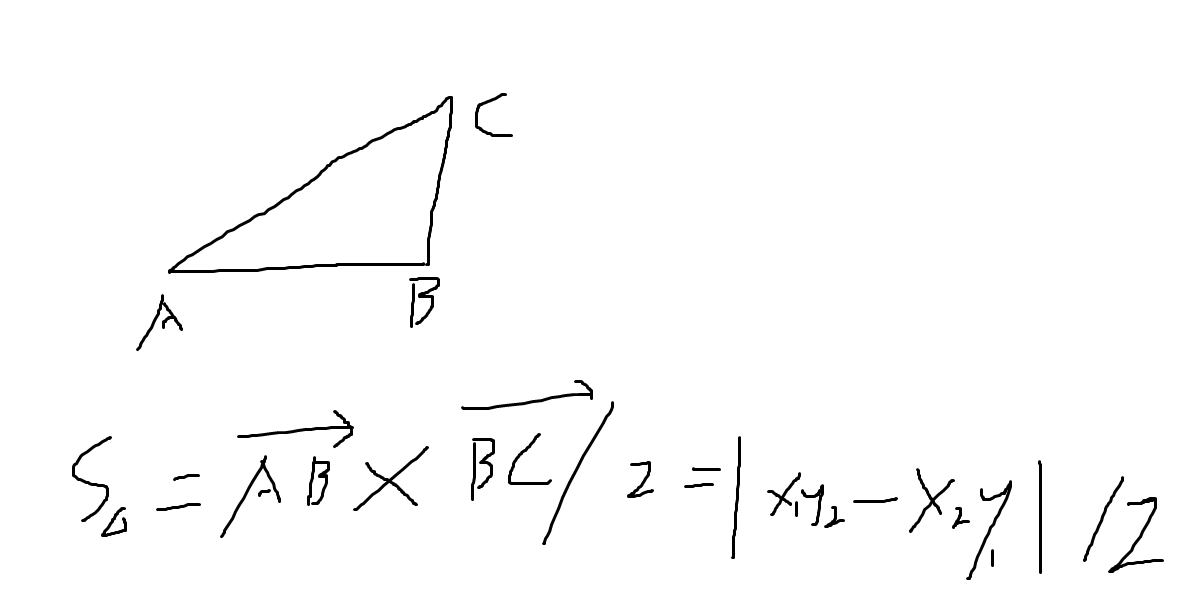 C
A
B
S△ = AB × BC / 2 = | x₁y₂ − x₂y₁ | / 2